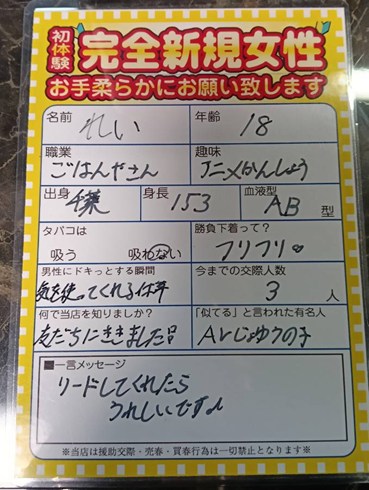 初体験 完全新規女性
お手柔らかにお願い致します
名前 れい 年齢 18
職業 ごはんやさん 趣味 アニメかんしょう
出身 千葉 身長 153 血液型 AB 型
タバコは 吸う 吸わない 勝負下着って? フリフリ♡
男性にドキっとする瞬間 気を使ってくれる 今までの交際人数 3 人
何で当店を知りましたか? 友だちにききました 「似てる」と言われた有名人 じゅうの子
■一言メッセージ
リードしてくれたら
うれしいです♪
※当店は援助交際・売春・買春行為は一切禁止となります※